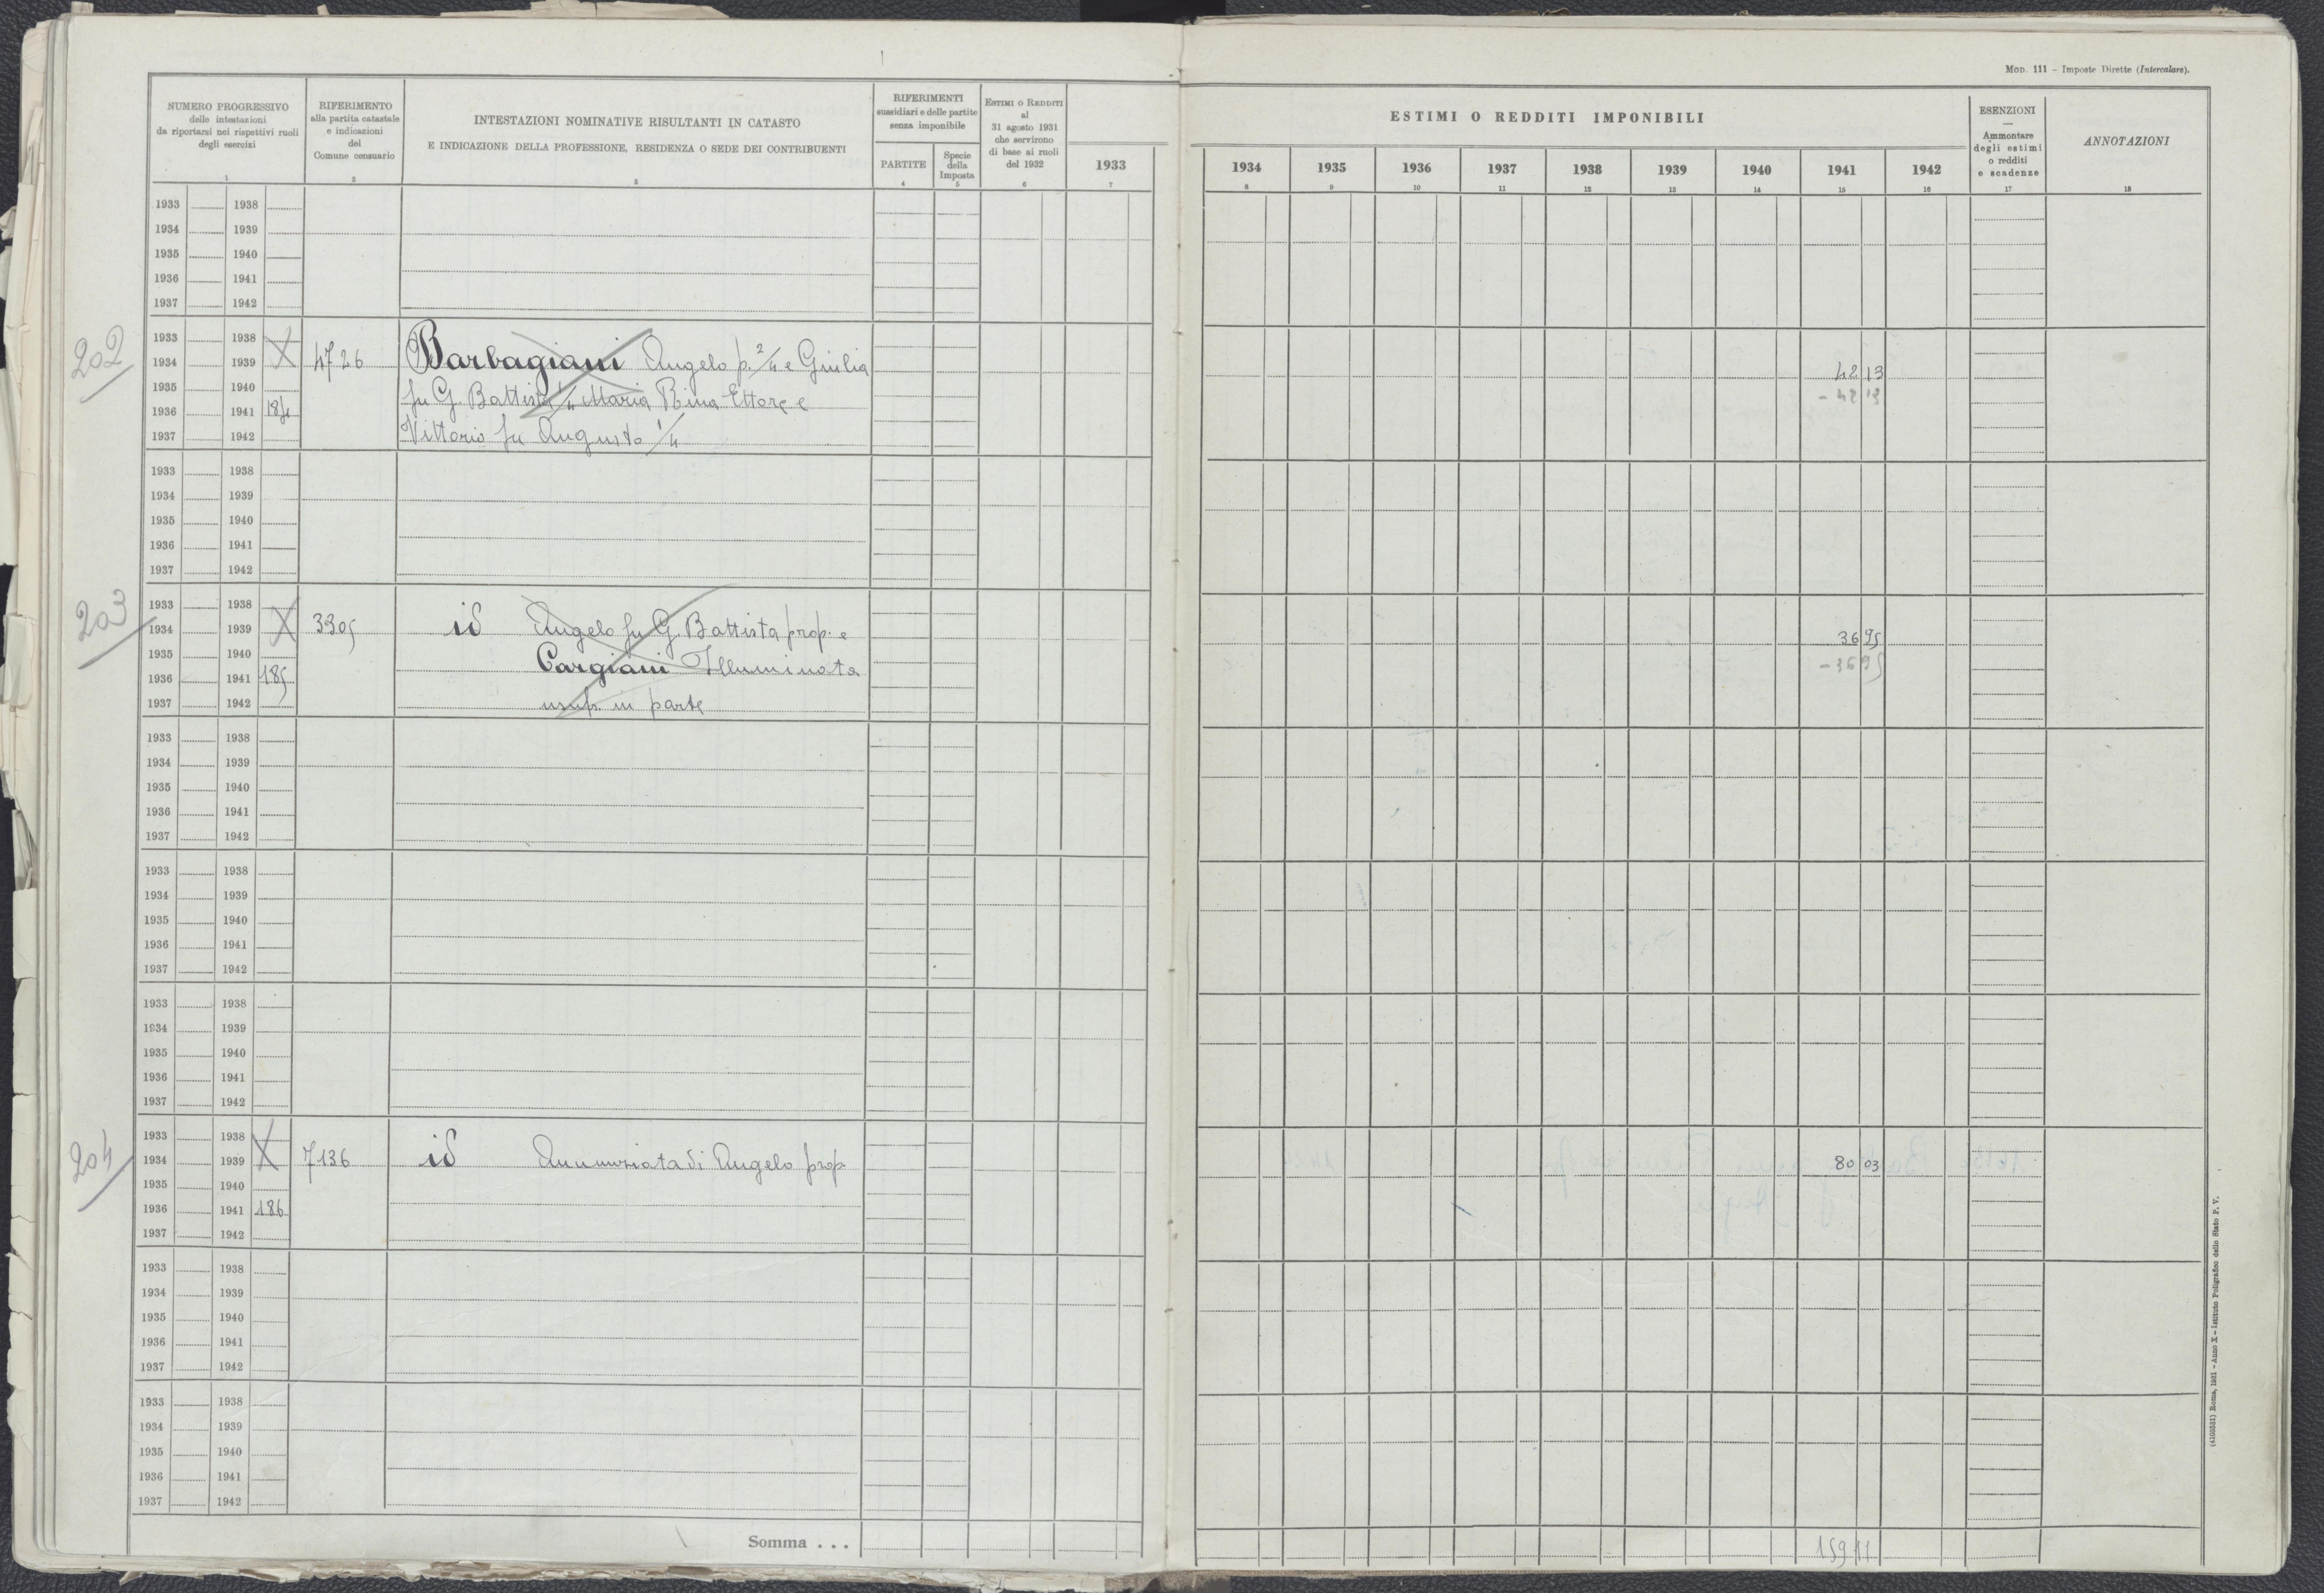 Mod. 111 – Imposte Dirette (Intercalare).
NUMERO PROGRESSIVO
delle intestazioni
da riportarsi nei rispettivi ruoli
degli esercizi
1
RIFERIMENTO
alla partita catastale
e indicazioni
del
Comune censuario
2
INTESTAZIONI NOMINATIVE RISULTANTI IN CATASTO
E INDICAZIONE DELLA PROFESSIONE, RESIDENZA O SEDE DEI CONTRIBUENTI
3
RIFERIMENTI
sussidiari e delle partite
senza imponibile
PARTITE
4
Specie
della
Imposta
5
Estimi o Redditi
al
31 agosto 1931
che servirono
di base ai ruoli
del 1932
6
1933
7
ESTIMI O REDDITI IMPONIBILI
1934 1935 1936 1937 1938 1939 1940 1941 1942
8 9 10 11 12 13 14 15 16
ESENZIONI
—
Ammontare
degli estimi
o redditi
e scadenze
17
ANNOTAZIONI
18
1933 1938
1934 1939
1935 1940
1936 1941
1937 1942
202
1933 1938
1934 1939 X 4726 Barbagiani Angelo p. 2/4 e Giulia 42 13
1935 1940 fu G. Battista 1/4 Maria Rina Ettore e - 42 13
1936 1941 184
1937 1942 Vittorio fu Augusto 1/4
1933 1938
1934 1939
1935 1940
1936 1941
1937 1942
203
1933 1938
1934 1939 X 3305 id Angelo fu G. Battista prop. e 36 95
1935 1940 Cargiani Illuminata - 36 95
1936 1941 185
1937 1942 usuf. in parte
1933 1938
1934 1939
1935 1940
1936 1941
1937 1942
1933 1938
1934 1939
1935 1940
1936 1941
1937 1942
1933 1938
1934 1939
1935 1940
1936 1941
1937 1942
204
1933 1938
1934 1939 X 7136 id Annunziata di Angelo prop. 80 03
1935 1940
1936 1941 186
1937 1942
1933 1938
1934 1939
1935 1940
1936 1941
1937 1942
1933 1938
1934 1939
1935 1940
1936 1941
1937 1942
Somma . . . 159 11
(4103531) Roma, 1931 - Anno X - Istituto Poligrafico dello Stato P. V.